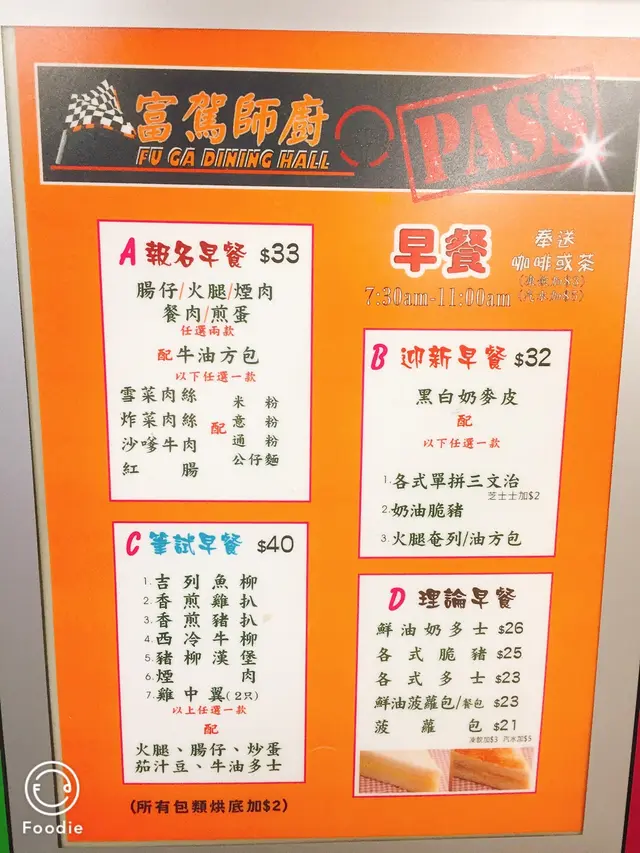 富駕師廚
FU GA DINING HALL
PASS
早餐
奉送
咖啡或茶
(凍飲加$3)
(汽水加$5)
7:30am-11:00am
A 報名早餐 $33
腸仔/火腿/煙肉
餐肉/煎蛋
任選兩款
配牛油方包
以下任選一款
雪菜肉絲
炸菜肉絲
沙嗲牛肉
紅腸
配
米粉
意粉
通粉
公仔麵
B 迎新早餐 $32
黑白奶麥皮
配
以下任選一款
1.各式單拼三文治
芝士士加$2
2.奶油脆豬
3.火腿奄列/油方包
C 筆試早餐 $40
1.吉列魚柳
2.香煎雞扒
3.香煎豬扒
4.西冷牛柳
5.豬柳漢堡
6.煙肉
7.雞中翼(2只)
以上任選一款
配
火腿、腸仔、炒蛋
茄汁豆、牛油多士
D 理論早餐
鮮油奶多士 $26
各式脆豬 $25
各式多士 $23
鮮油菠蘿包/餐包 $23
菠蘿包 $21
凍飲加$3 汽水加$5
(所有包類烘底加$2)
Foodie